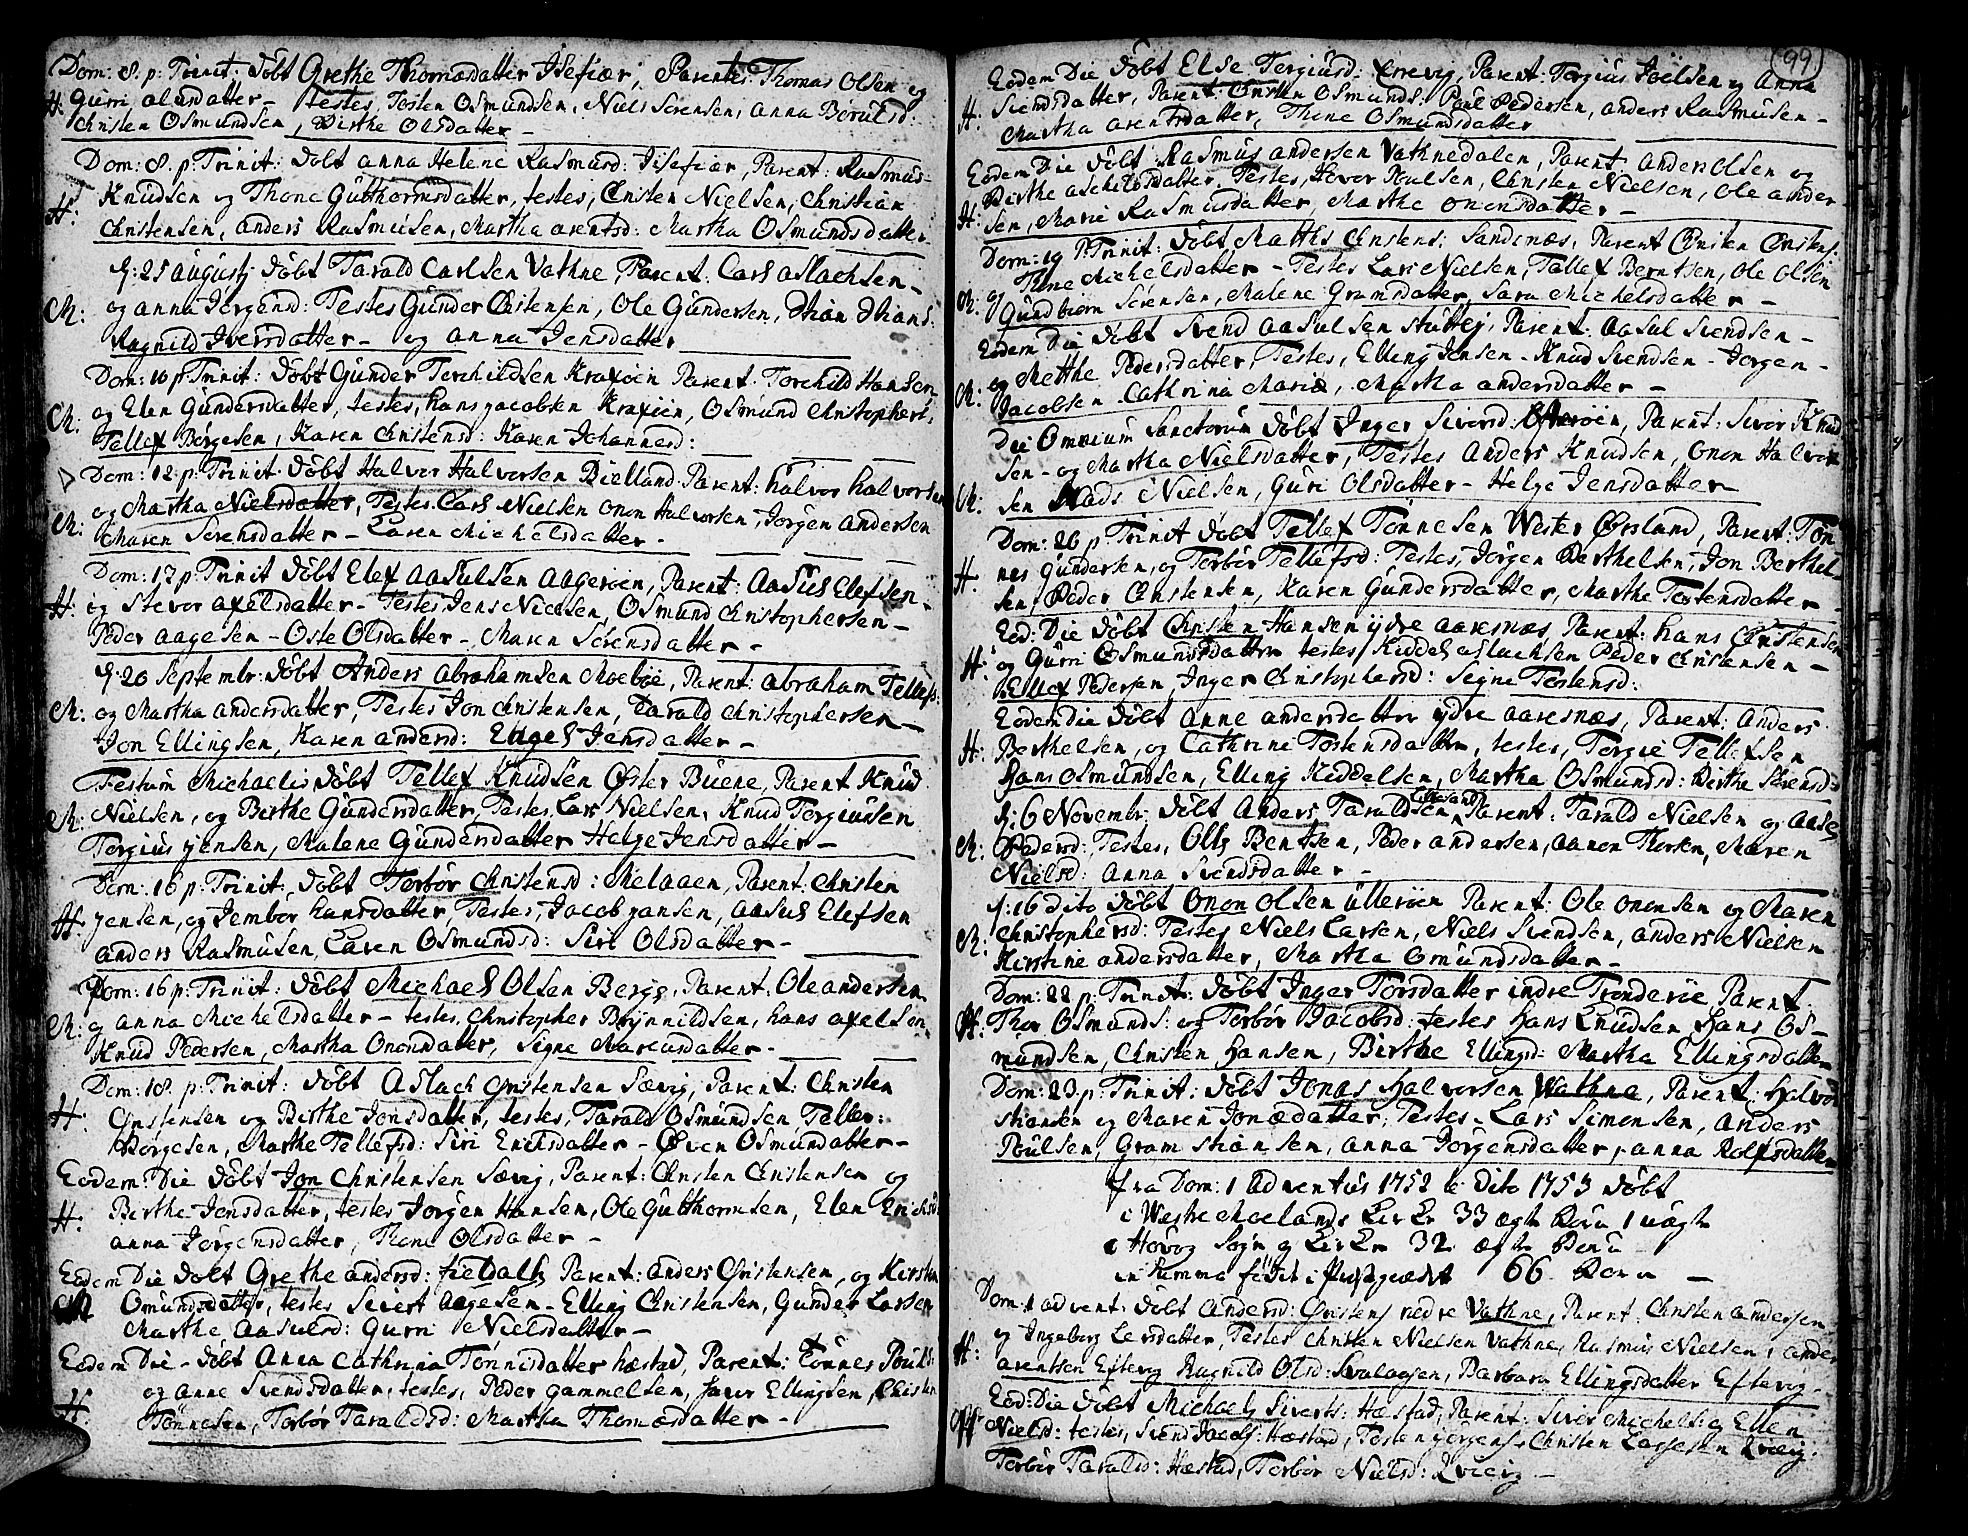 Dom: 8. p: Trinit: døbt Grethe Thomædatter Isefiær, Parentes: Thomas Olsen og
H. Gurri olusdatter - testes, Tosten Osmundsen, Niels Sørensen, Anna Berulsd.
Christen Osmundsen, Birthe Olsdatter -
Dom: 8. p: Trinit: døbt anna Helene Rasmusd: Iisefiær, Parent: Rasmus
H: Knudsen og Thone Gutthormsdatter, testes, Christen Nielsen, Christian
Christensen, anders Rasmusen, Martha arentsd: Martha Osmundsdatter
d: 25 augustj døbt Tarald Carlsen Vathne, Parent: Carl aslachsen -
M: og anna Jørgensd: Testes Gunder Christensen, Ole Gundersen,
Ragnild Iversdatter - og anna Jensdatter
Dom: 10 p Trinit: døbt Gunder Terchildsen Kraføen Parent: Torchild Hansen
M: og Elen Gundersdatter, testes, hans jacobsen Kraføen, Osmund Christophers:
Tellef Børgesen, Karen Christensd: Karen Johannesd:
Dom: 12 p: Trinit: døbt Halvor Halvorsen Bielland Parent: halvor halvorsen
M: og Martha Nielsdatter, Testes Lars Nielsen onon Halvorsen, Jørgen andersen
Maren Sørensdatter - Karen Michelsdatter -
Dom: 17 p: Trinit døbt Elef aasulsen aagerøen, Parent: Aasul Elefsen -
H. og Stevor axelsdatter - Testes, Jens Nielsen, Osmund Christophersen -
Peder aagesen - Oste Olsdatter - Maren Sørensdatter -
d: 20 septembr: døbt Anders abrahamsen Moebøe, Parent: abraham Tellefs:
M: og Martha andersdatter, Testes Jon Christensen, Tarald Christophersen -
Jon Ellingsen, Karen andersd: Engel Jensdatter -
Festum Michaelis døbt Tellef Knudsen Øster Buene, Parent Knud
M: Nielsen, og Birthe Gundersdatter, Testes, Lars Nielsen, Knud Torgiusen
Torgius jensen, Malene Gundersdatter Helge Jensdatter -
Dom: 16 p: Trinit: døbt Torbør Christensd: Melaaen, Parent: Christen
H. jensen, og Jembør hansdatter, Testes, Jacob jansen, aasul Elefsen
anders Rasmusen, Karen Osmundsd: Siri Olsdatter -
Dom: 16 p: Trinit: døbt Michael Olsen Berge, Parent: Ole andersen
M: og anna Michelsdatter - testes, Christopher Brynnildsen, hans axelsen
Knud Pedersen, Martha Onondatter, Signe Marcusdatter -
Dom: 18. p: Trinit: døbt Aslach Christensen Sævig, Parent: Christen
H: Christensen og Birthe Jonsdatter, testes, Tarald Osmundsen, Tellef:
Børgesen, Marthe Tellefsd: Siri Erichsdatter - Osmundsdatter -
Eodem Die døbt Jon Christensen Sævig, Parent: Christen Christensen og
H: Birthe Jensdatter, testes Jørgen Hansen, Ole Gutthormsen, Elen Erichsd:
anna Jørgensdatter, Thone Olsdatter -
Eodem Die døbt Grethe andersd: fieldalb Parent: anders Christensen, og Kirsten
Omundsdatter, testes Sivert aagesen - Elling Christensen, Gunder Larsen
Marthe aasulsd: Gurri Nielsdatter -
Eodem Die - døbt Anna Cathrina Tønnisdatter hæstad, Parent: Tønnes Poulsen
H. og anne Svendsdatter, testes, Peder gammelsen, Iver Ellingsen, Christen
Tønnesen, Torbør Taraldsd: Martha Thomædatter -
99
Eodem Die døbt Else Torgiusd: Errevig, Parent: Torgius Joelsen og Anna
H. Svendsdatter, Parent: Christen Osmunds: Paul Pedersen, anders Rasmusen -
Martha arentsdatter, Thone Osmundsdatter
Eodem Die døbt Rasmus andersen Vathnedalen, Parent anders Olsen og
H. Birthe aschildsdatter, Testes, Hovor Poulsen, Christen Nielsen, Ole ander
sen, Marie Rasmusdatter, Marthe Ononsdatter -
Dom: 19 p Trinit: døbt Matths Christens: Sandnæs, Parent Christen Christens:
M: og Thone Michelsdatter - Testes Lars Nielsen, Tellef Berntsen, Ole Olsen
Gundbiørn Sørensen, Malene Gramsdatter, Sara Michelsdatter -
Eodem Die døbt Svend Aasulsen Parent: Aasul Svendsen -
M: og Methe Pedersdatter, Testes, Elling Jensen - Knud Svendsen - Jørgen -
Jacobsen Cathrina Mariæ, Martha andersdatter -
Die Omnium Sanctorum døbt Inger Siversd: Parent: Sivor Knud
M: sen - og Martha Nielsdatter, Testes Anders Knudsen, Onon Halvor
sen Mads Nielsen, Guri Olsdatter - Helge Jensdatter
Dom: 20 p: Trinit døbt Tellef Tønnesen Wester Ørslund, Parent: Tøn
H. nes Gundersen, og Torbør Tellefsd: Testes, Jørgen Berthelsen, Jon Berthel-
sen, Peder Christensen, Karen Gundersdatter, Marthe Tostensdatter -
Eod: Die døbt Christen Hansen ydre aaresnæs, Parent: hans Christensen
H. og Gurri Osmundsdatter testes, Kiddel aslachsen Peder Christensen -
Ellef Pedersen, Inger Christophersd: Signe Tostensd:
Eodem Die døbt Anne andersdatter ydre aaresnæs, Parent: Anders
H: Berthelsen, og Cathrine Tostensdatter, testes, Torgie Tellefsen
hans Osmundsen, Elling Kiddelsen, Martha Osmundsd: Birthe Sørensd:
d: 6 Novembr: døbt Anders Taraldsen Lillesand Parent: Tarald Nielsen og aase
M: Pedersd: Testes, Olle Bentsen, Peder andersen, aanon Thorsen, Maren
Nielsd: anna Svendsdatter -
d: 16 dito døbt Onon Olsen ullerøen Parent: Ole ononsen og Maren
M: Christophersd: Testes Niels Larsen, Niels Svendsen, anders Nielsen
Kirstine andersdatter, Martha Omundsdatter -
Dom: 22 p: Trinit: døbt Inger Torsdatter indre Trønderøe Parent:
H: Thor Osmunds: og Torbør Jacobsd: testes Hans Knudsen, Hans Os-
mundsen, Christen Hansen, Birthe Ellingsd: Martha Ellingsdatter
Dom: 23 p: Trinit: døbt Jonas Halvorsen Wathne, Parent: Halvor
stiansen og Maren Jonædatter, Testes - Lars Simonsen, Anders
Poulsen, Gram stiansen, anna Jørgensdatter, anna Rolfsdatter
fra Dom: 1 Adventus 1752 til Dito 1753 døbt
i Westre Molands Kirke 33 ægte Børn 1 uægte
i Høvog Sogn og Kirke 32 ægte Børn
in summa fødet i Præstegieldet 66 Børn -
Dom: 1 advent: døbt Andersd: Christens nedre Vathne, Parent: Christen andersen
H: og Ingeborg Larsdatter, Testes Christen Nielsen Vathne, Rasmus Nielsen, ander
arentsen Eftevig Ragnild Olsd: Barbara Ellingsdatter Eftevig -
Eod: Die døbt Michael Siverts: Hæstad, Parent: Siver Michels: og Ellen
H Nielsd: testes, Svend Jacobs: Hæstad, Tosten jørgens: Christen Lassesen Qvevig.
Torbør Taralsd: Hæstad, Torbør Nielsd: Qvevig -